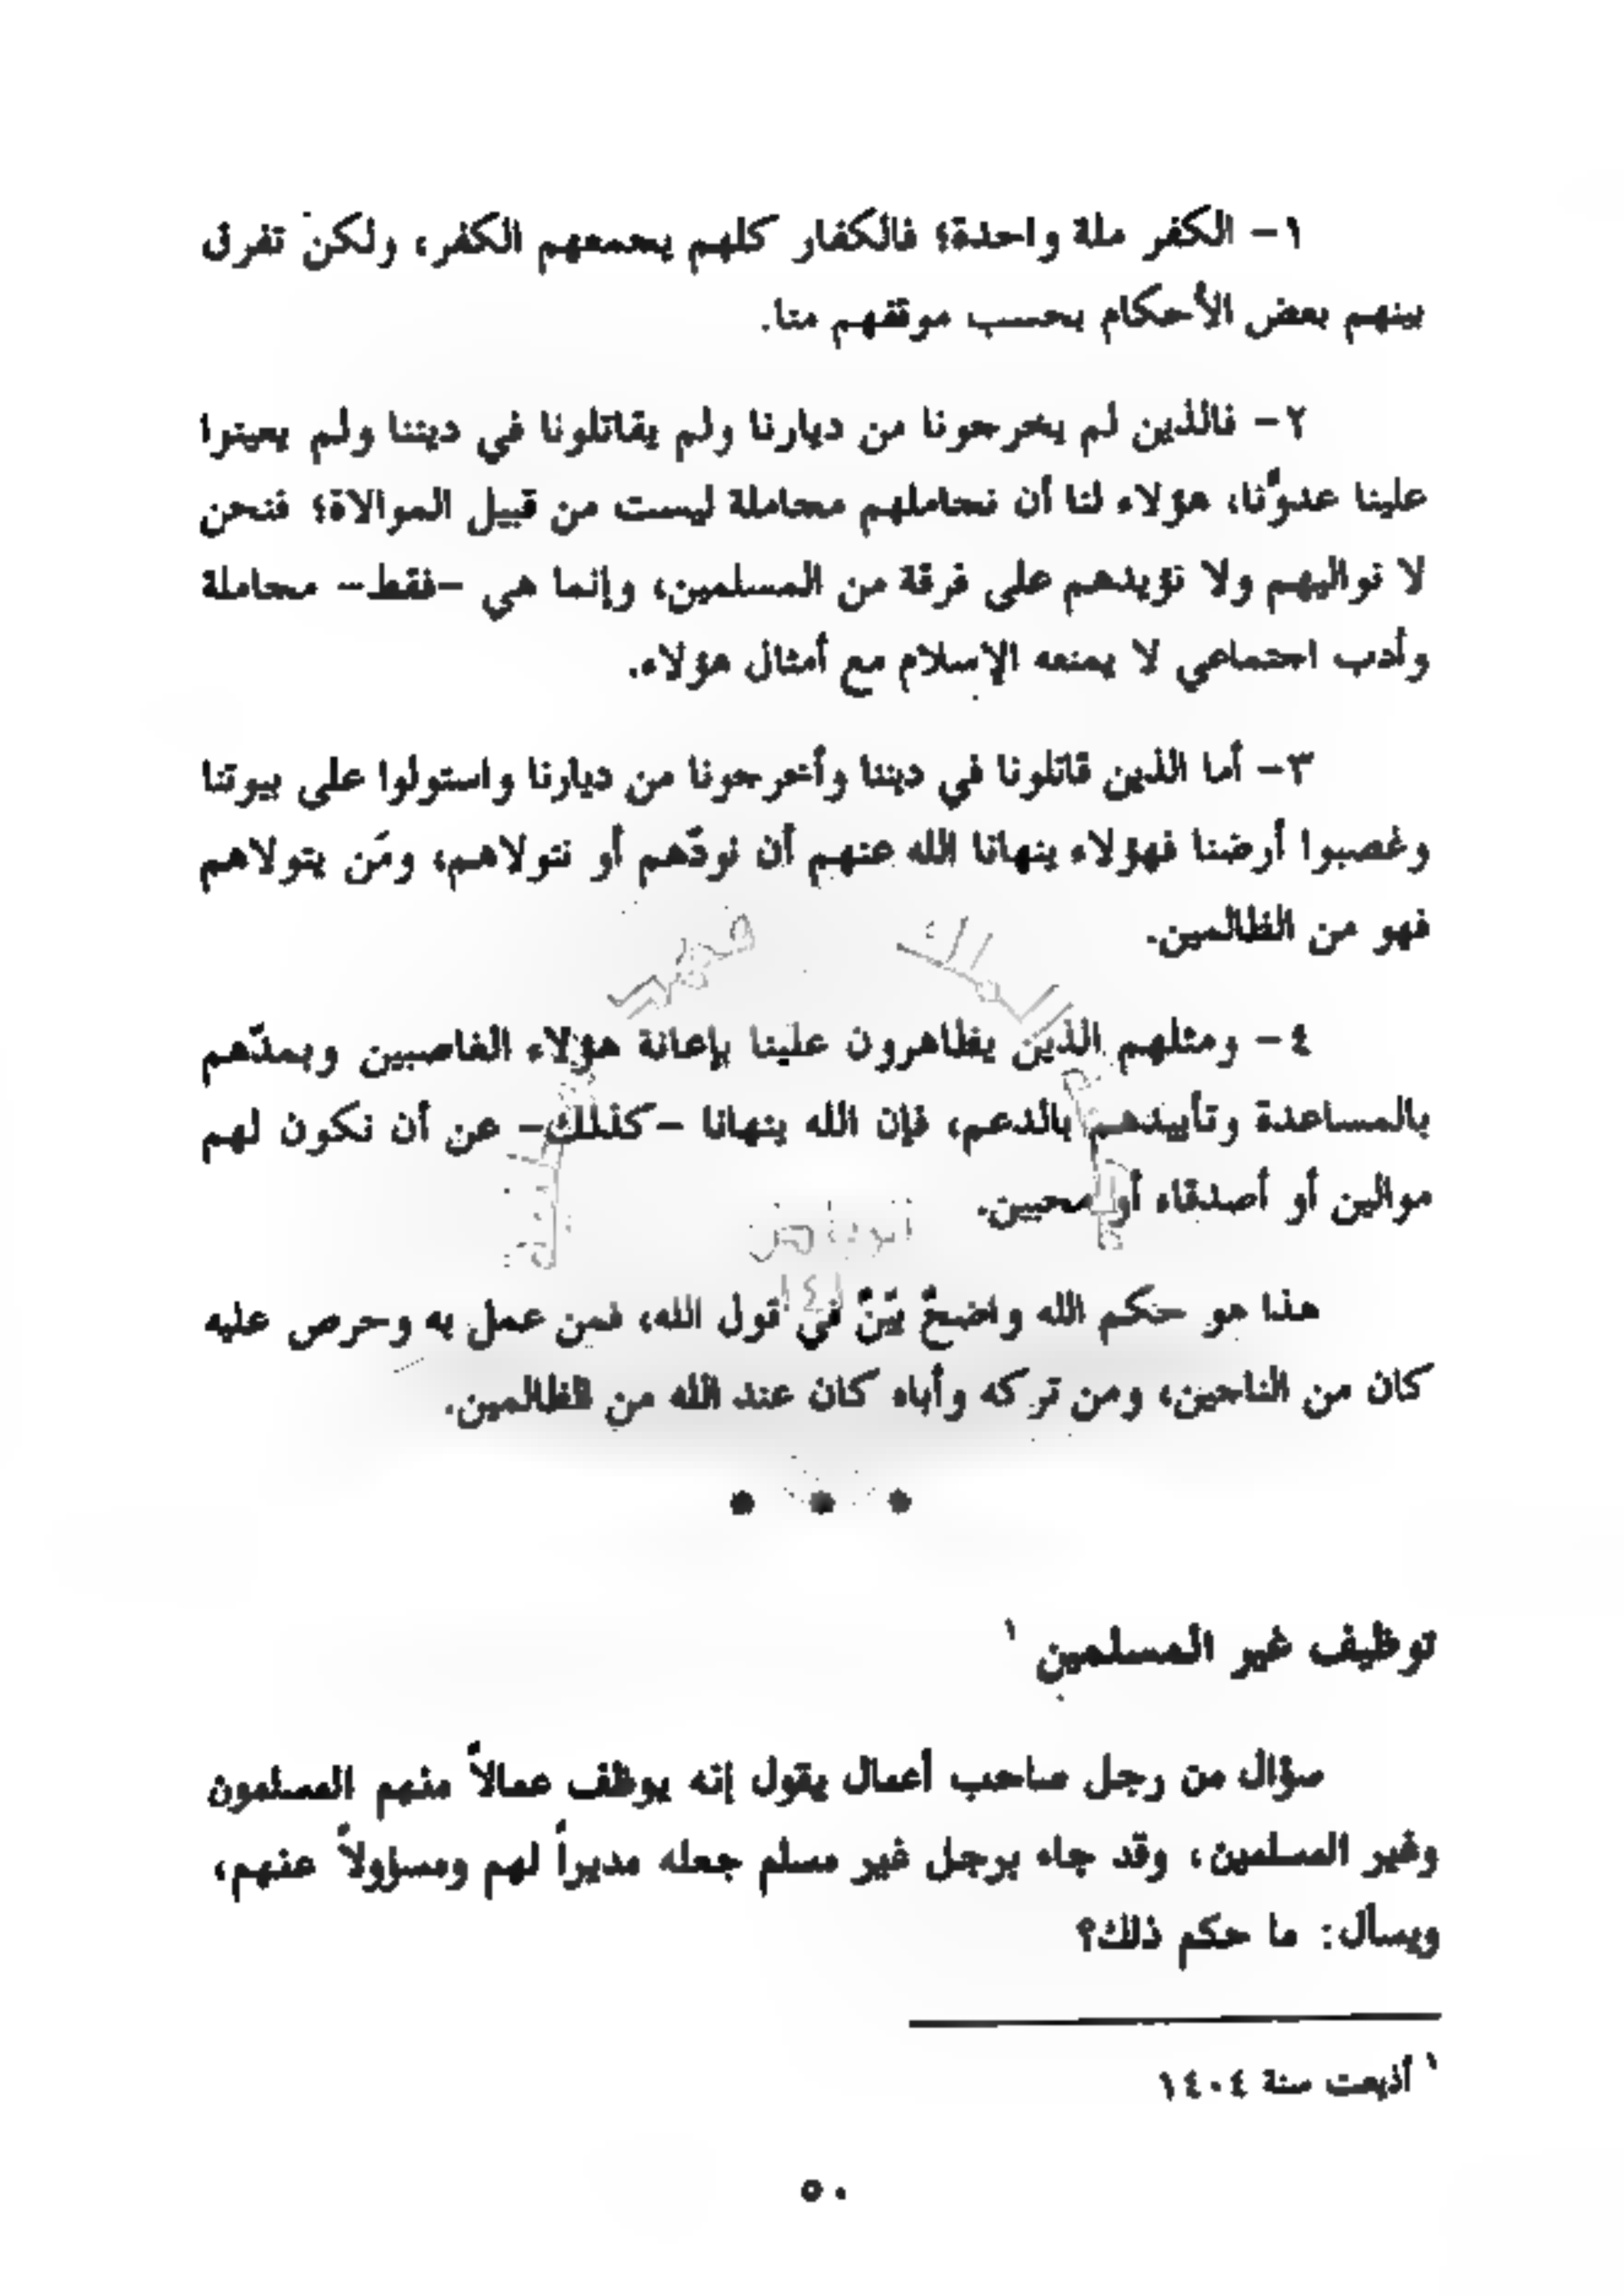 ١- الكفر ملة واحدة؛ فالكفار كلهم يجمعهم الكفر، ولكن تفرق
بينهم بعض الأحكام بحسب موقفهم منا.
٢- فالذين لم يخرجونا من ديارنا ولم يقاتلونا في ديننا ولم يعينوا
علينا عدوّنا، هؤلاء لنا أن نجاملهم مجاملة ليست من قبيل الموالاة؛ فنحن
لا نواليهم ولا نؤيدهم على فرقة من المسلمين، وإنما هي -فقط- مجاملة
وأدب اجتماعي لا يمنعه الإسلام مع أمثال هؤلاء.
٣- أما الذين قاتلونا في ديننا وأخرجونا من ديارنا واستولوا على بيوتنا
وغصبوا أرضنا فهؤلاء ينهانا الله عنهم أن نودّهم أو نتولاهم، ومَن يتولاهم
فهو من الظالمين.
٤- ومثلهم الذين يظاهرون علينا بإعانة هؤلاء الغاصبين وبمدّهم
بالمساعدة وتأييدهم بالدعم، فإن الله ينهانا -كذلك- عن أن نكون لهم
موالين أو أصدقاء أو محبين.
هذا هو حكم الله واضحٌ بيّنٌ في قول الله، فمن عمل به وحرص عليه
كان من الناجين، ومن تركه وأباه كان عند الله من الظالمين.
• • •
توظيف غير المسلمين ١
سؤال من رجل صاحب أعمال يقول إنه يوظف عمالاً منهم المسلمون
وغير المسلمين، وقد جاء برجل غير مسلم جعله مديراً لهم ومسؤولاً عنهم،
ويسأل: ما حكم ذلك؟
١ أذيعت سنة ١٤٠٤
٥٠